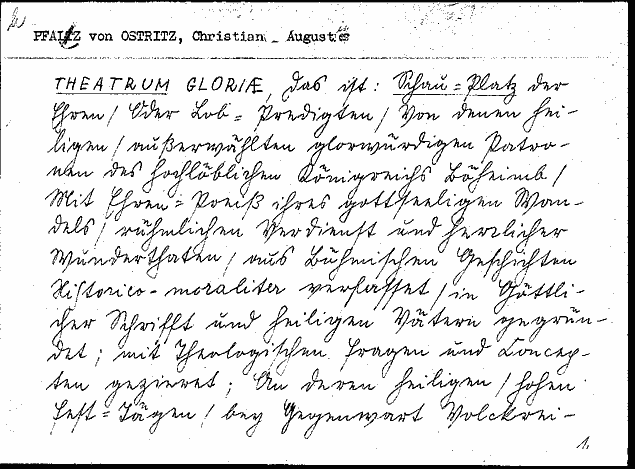 PFALTZ von OSTRITZ, Christian August
THEATRUM GLORIÆ, Das ist: Schau=Platz der
Ehren / Oder Lob= Predigten / Von denen hei-
ligen / außerwählten glorwürdigen Patro-
nen des hochlöblichen Königreichs Böheimb /
Mit Ehren=Preiß ihres gottseeligen Wan-
dels / rühmlichen Verdienst und herrlicher
Wunderthaten / aus Böhmischen Geschichten
Historico-moraliter verfasset / in Göttli-
cher Schrifft und heiligen Vätern gegrün-
det; mit Theologischen fragen und Concep-
ten gezieret; An deren heiligen / hohen
Fest=Tägen / bey Gegenwart Volckrei-
1.